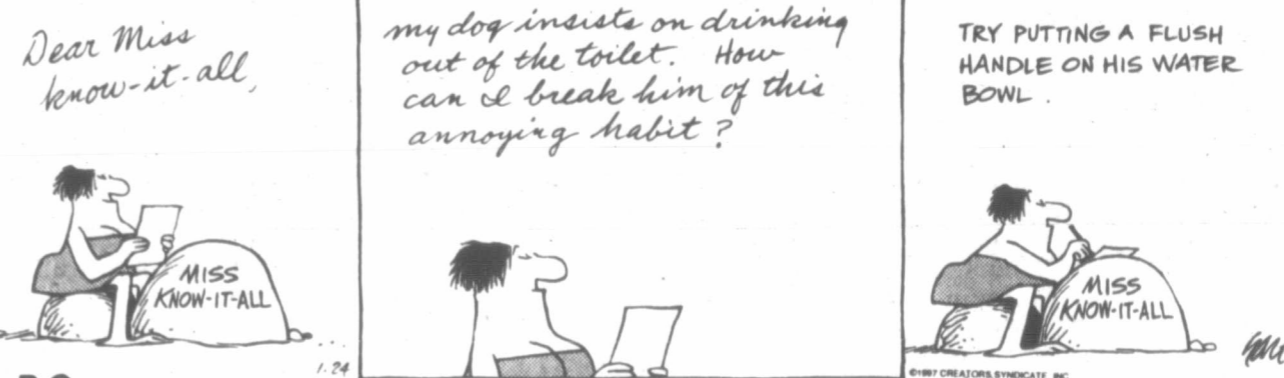 Dear Miss
know-it-all,
MISS
KNOW-IT-ALL
1.24
my dog insists on drinking
out of the toilet. How
can I break him of this
annoying habit?
TRY PUTTING A FLUSH
HANDLE ON HIS WATER
BOWL.
MISS
KNOW-IT-ALL
©1997 CREATORS SYNDICATE, INC.